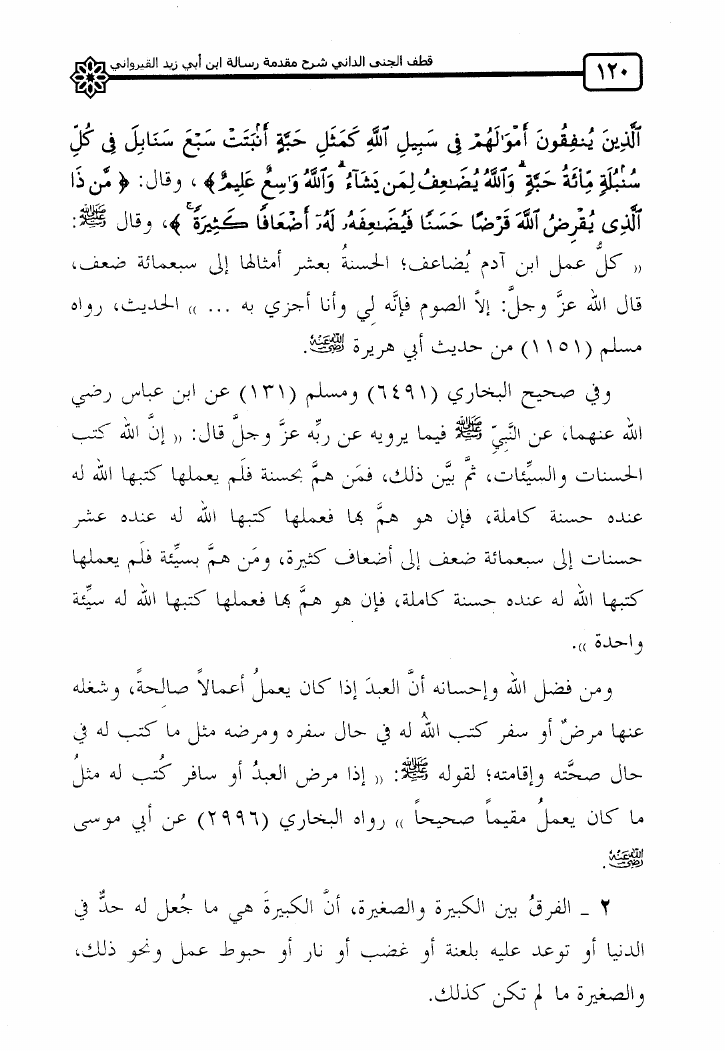 ١٢٠
قطف الجنى الداني شرح مقدمة رسالة ابن أبي زيد القيرواني
ٱلَّذِينَ يُنفِقُونَ أَمْوَٰلَهُمْ فِى سَبِيلِ ٱللَّهِ كَمَثَلِ حَبَّةٍ أَنۢبَتَتْ سَبْعَ سَنَابِلَ فِى كُلِّ
سُنۢبُلَةٍ مِّا۟ئَةُ حَبَّةٍ ۗ وَٱللَّهُ يُضَٰعِفُ لِمَن يَشَآءُ ۗ وَٱللَّهُ وَٰسِعٌ عَلِيمٌ ﴾ ، وقال: ﴿ مَّن ذَا
ٱلَّذِى يُقْرِضُ ٱللَّهَ قَرْضًا حَسَنًا فَيُضَٰعِفَهُۥ لَهُۥٓ أَضْعَافًا كَثِيرَةً ۚ ﴾، وقال ﷺ:
(( كلُّ عمل ابن آدم يُضاعف؛ الحسنةُ بعشر أمثالها إلى سبعمائة ضعف،
قال الله عزَّ وجلَّ: إلاَّ الصوم فإنَّه لِي وأنا أجزي به ... )) الحديث، رواه
مسلم (١١٥١) من حديث أبي هريرة رضي الله عنه.
وفي صحيح البخاري (٦٤٩١) ومسلم (١٣١) عن ابن عباس رضي
الله عنهما، عن النَّبيِّ ﷺ فيما يرويه عن ربِّه عزَّ وجلَّ قال: (( إنَّ الله كتب
الحسنات والسيِّئات، ثمَّ بيَّن ذلك، فمَن همَّ بحسنة فلَم يعملها كتبها الله له
عنده حسنة كاملة، فإن هو همَّ بها فعملها كتبها الله له عنده عشر
حسنات إلى سبعمائة ضعف إلى أضعاف كثيرة، ومَن همَّ بسيِّئة فلَم يعملها
كتبها الله له عنده حسنة كاملة، فإن هو همَّ بها فعملها كتبها الله له سيِّئة
واحدة )).
ومن فضل الله وإحسانه أنَّ العبدَ إذا كان يعملُ أعمالاً صالحةً، وشغله
عنها مرضٌ أو سفر كتب اللهُ له في حال سفره ومرضه مثل ما كتب له في
حال صحَّته وإقامته؛ لقوله ﷺ: (( إذا مرض العبدُ أو سافر كُتب له مثلُ
ما كان يعملُ مقيماً صحيحاً )) رواه البخاري (٢٩٩٦) عن أبي موسى
رضي الله عنه.
٢ ـ الفرقُ بين الكبيرة والصغيرة، أنَّ الكبيرةَ هي ما جُعل له حدٌّ في
الدنيا أو توعد عليه بلعنة أو غضب أو نار أو حبوط عمل ونحو ذلك،
والصغيرة ما لم تكن كذلك.